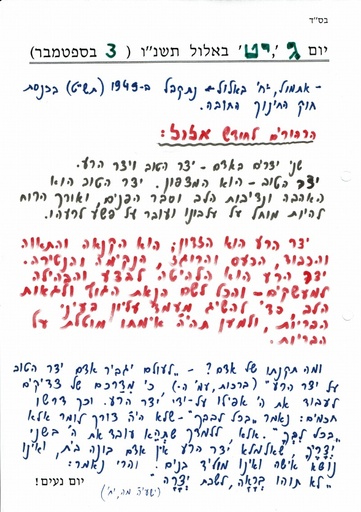 בס"ד
יום ג', י"ט באלול תשנ"ו ( 3 בספטמבר)
- אתמול, י"ח באלול - נתקבל ב-1949 (תש"ט) בכנסת
חוק החינוך החובה.
הרהורים לחודש אלול:
שני יצרים באדם - יצר הטוב ויצר הרע.
יצר הטוב - הוא המצפון. יצר הטוב הוא
האהבה ונדיבות הלב וסבר הפנים, ואורך הרוח
להיות מוחל על עלבונו ועובר על פשע לרעהו.
יצר הרע הוא הזדון; הוא הקנאה והתאוה
והכבוד, הכעס והרוגז, הנקימה והנטירה.
יצר הרע הוא הלהיטה לבצע והבהילה
למעשקים - והכל לשם הנאת הגוף ולגאות
הלב כדי להשיג מעמד עליון בעיני
הבריות, ולמען תהיה אימתו מוטלת על
הבריות.
ומה תקנתו של אדם? - "לעולם יגביר אדם יצר הטוב
על יצר הרע" (ברכות, עמ' ה.) כי מדרכם של צדיקים
לעבוד את ה' אפילו על-ידי יצר הרע. וכך דרשו
חכמים: נאמר "בכל לבבך" - שלא היה צורך לומר אלא
"בכל לבך". אלא, ללמדך שתהא עובד את ה' בשני
יצריך, שאלמלא יצר הרע אין אדם בונה בית, ואינו
נושא אישה ואינו מוליד בנים. והרי נאמר:
"לא תוהו בראה, לשבת יצרה"
(ישעיה מה, יח')
יום נעים!